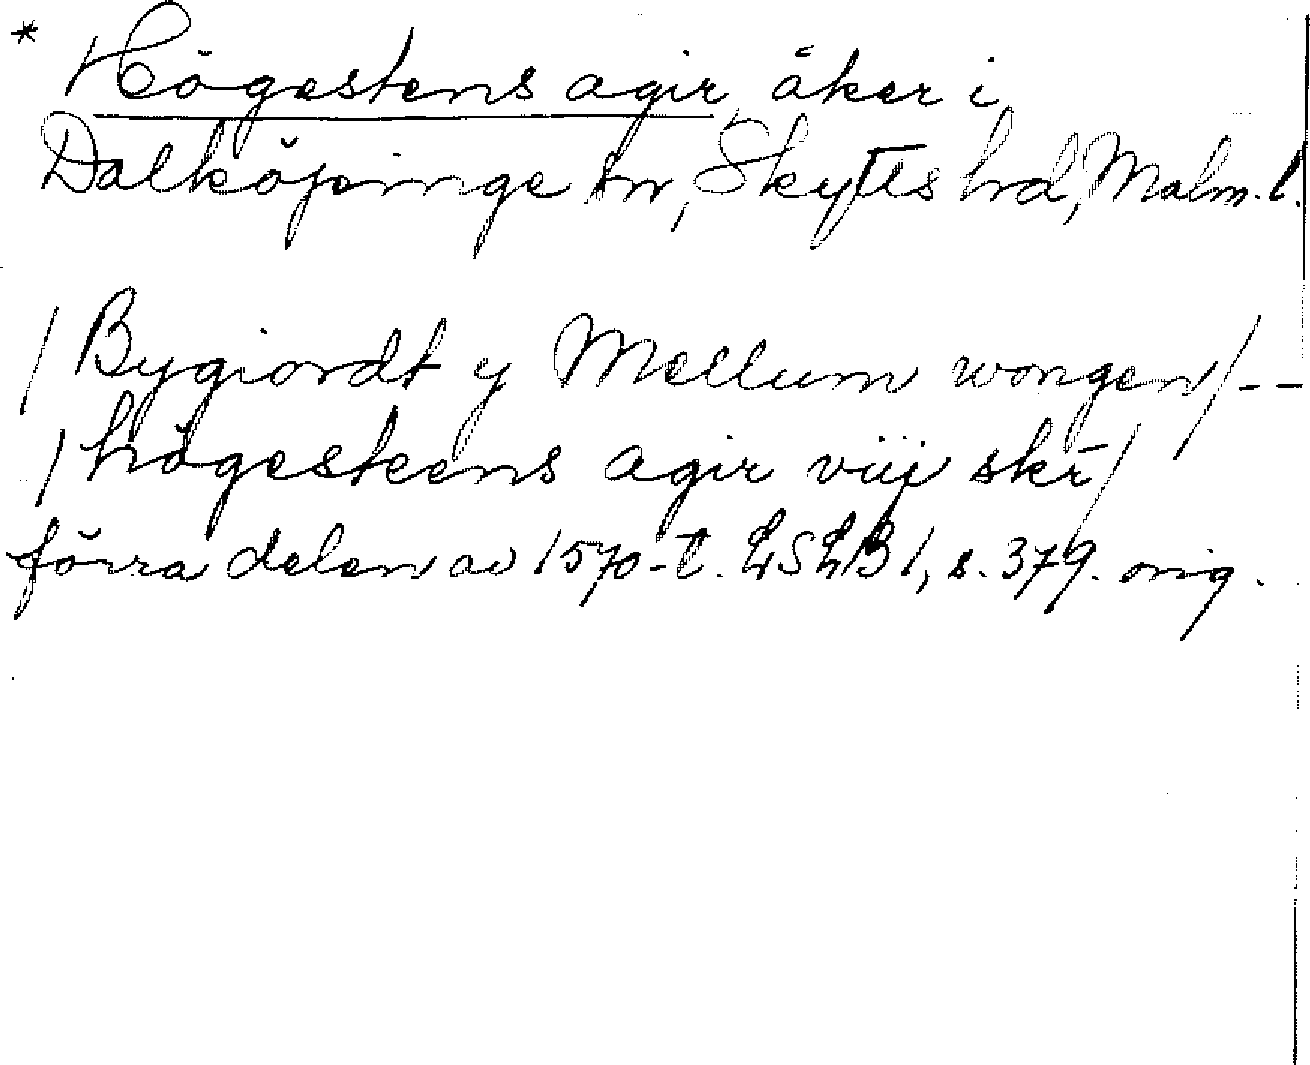 * Högestens agir, åker i
Dalköpinge sn, Skytts hd, Malm. l.
/Bygiordt y Mellum wongen/--
/högesteens agir viij skr/
förra delen av 1570-t. LSLB 1, s. 379. orig.